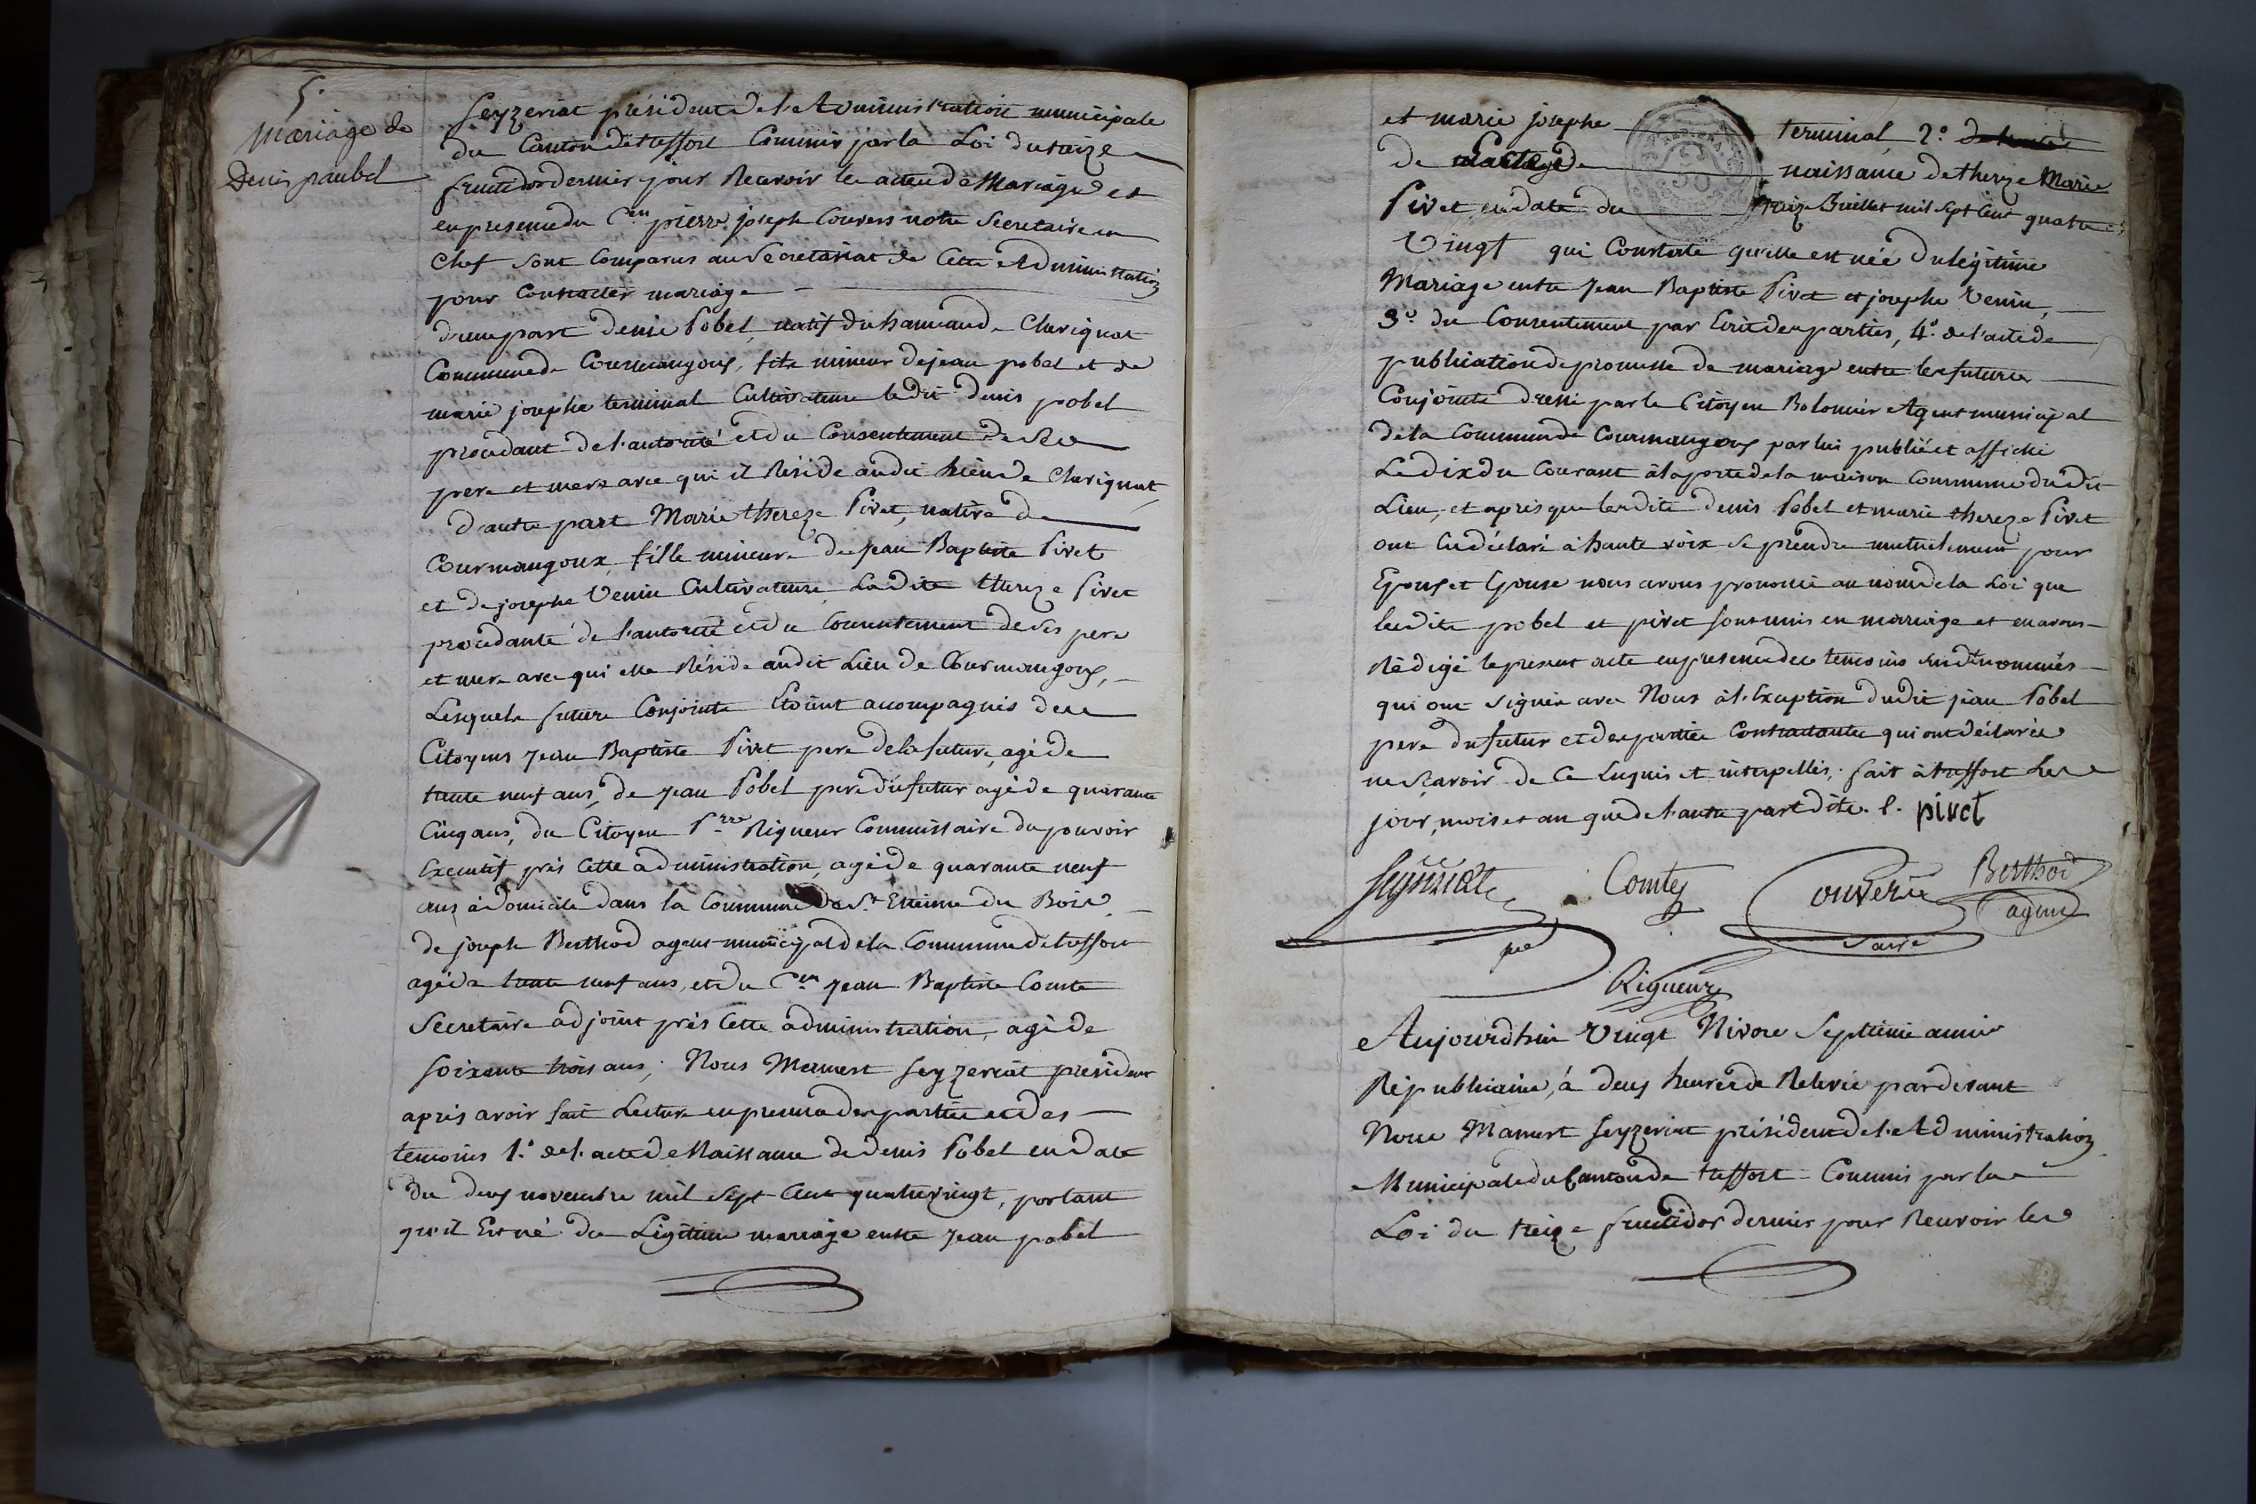 5.
Mariage de
Denis paubel
Seyzeriat président de l'Administration municipale
du Canton de treffort Commis par la Loi du treize
fructidor dernier pour Recevoir les actes de Mariage et
en presence du C.en pierre joseph Couvers notre Secretaire en
Chef sont Comparus au Secretariat de Cette Administration
pour Contracter mariage
d'une part denis Pobel, natif du hameau de Chevignat
Commune de Courmangoux, fils mineur de jean pobel et de
marie josephe terminal Cultivateurs ledit denis pobel
procedant de l'autorité et du Consentement de Ses
pere et mere avec qui il Réside audit hieu de Chevignat
d'autre part Marie thereze Pivet, native de
Courmangoux, fille mineure de Jean Baptiste Pivet
et de josephe Venin Cultivateurs Ladite thereze Pivet
procedante de l'autorité et du Consentement de Ses pere
et mere avec qui elle Réside audit Lieu de Courmangoux,
Lesquels futurs Conjoints Etoient acompagnés des
Citoyens Jean Baptiste Pivet pere de la future, agé de
trente neuf ans, de Jean Pobel pere du futur agé de quarante
Cinq ans, du Citoyen P.rre Rigueur Commissaire du pouvoir
Executif près Cette administration, agé de quarante neuf
ans à domicile dans la Commune de S.t Etienne du Bois
de joseph Berthod agent municipal de la Commune de treffort
agé de trente neuf ans, et du C.en Jean Baptiste Comte
Secretaire adjoint près Cette administration, agé de
soixante trois ans; Nous Mamert Seyzeriat président
après avoir fait Lecture en presence des parties et des
temoins 1.° de l'acte de Naissance de denis Pobel en date
du deux novembre mil sept Cent quatrevingt, portant
qu'il Est né du Légitime mariage entre Jean pobel
et marie josephe terminal, 2.°
de naissance de thereze Marie
Pivet, en date du treize Juillet mil sept Cent quatre
Vingt qui Constate qu'elle est née du légitime
Mariage entre Jean Baptiste Pivet et josephe Venin,
3.° du Consentement par Ecrit des parties, 4.° de l'acte de
publication de promesse de mariage entre les futurs
Conjoints dressé par le Citoyen Bolomier Agent municipal
de la Commune de Courmangoux par lui publié et affiché
Le dix du Courant à la porte de la maison Commune dudit
Lieu, et après que lesdits denis Pobel et marie thereze Pivet
ont Eu déclaré à haute voix se prendre mutuelement pour
Epoux et Epouse nous avons prononcé au nom de la Loi que
lesdits pobel et pivet sont unis en mariage et en avons
Rédigé le present acte en presence des temoins susd.ts nommés
qui ont signés avec Nous à l'Exception dudit jean Pobel
pere du futur et des parties Contractantes qui ont déclarés
ne Scavoir de Ce Enquis et interpellés; fait à treffort Les
jour, mois et an que de l'autre part dits. l. pivet
Seyzeriat Comte Couvers Berthod
pre Saire agent
Rigueur
Aujourdhui Vingt Nivose Septieme année
Republicaine, à deux heures de Relevée pardevant
Nous Mamert Seyzeriat président de l'Administration
Municipale du Canton de treffort Commis par la
Loi du treize fructidor dernier pour Recevoir les